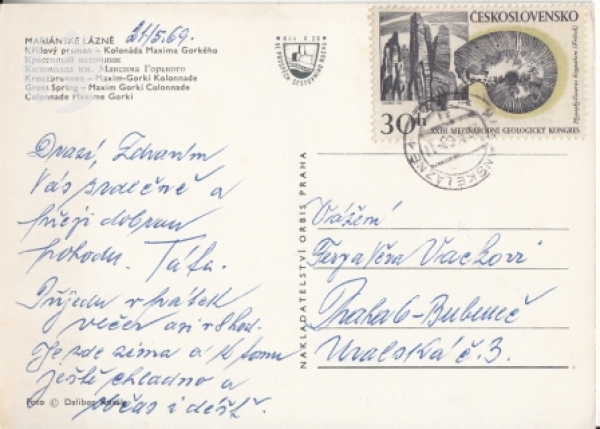 MARIÁNSKÉ LÁZNĚ 21/5.69.
Křížový pramen – Kolonáda Maxima Gorkého
Крестовый источник
Колоннада им. Максима Горького
Kreuzbrunnen – Maxim-Gorki Kolonnade
Cross Spring – Maxim Gorki Colonnade
Colonnade Maxime Gorki
Kčs 0,20
ČESKOSLOVENSKO
30 h
XXIII. MEZINÁRODNÍ GEOLOGICKÝ KONGRES
MARIÁNSKÉ LÁZNĚ
Drazí, Zdravím
Vás srdečně a
přeji dobrou
pohodu. Táťa.
Přijedu v pátek
večer asi v 8 hod.
Je zde zima a k tomu
ještě chladno a
počas i déšť.
Foto © Dalibor
NAKLADATELSTVÍ ORBIS PRAHA
Vážení
Věra Vackovi
Praha 6 - Bubeneč
Uralská č. 3.